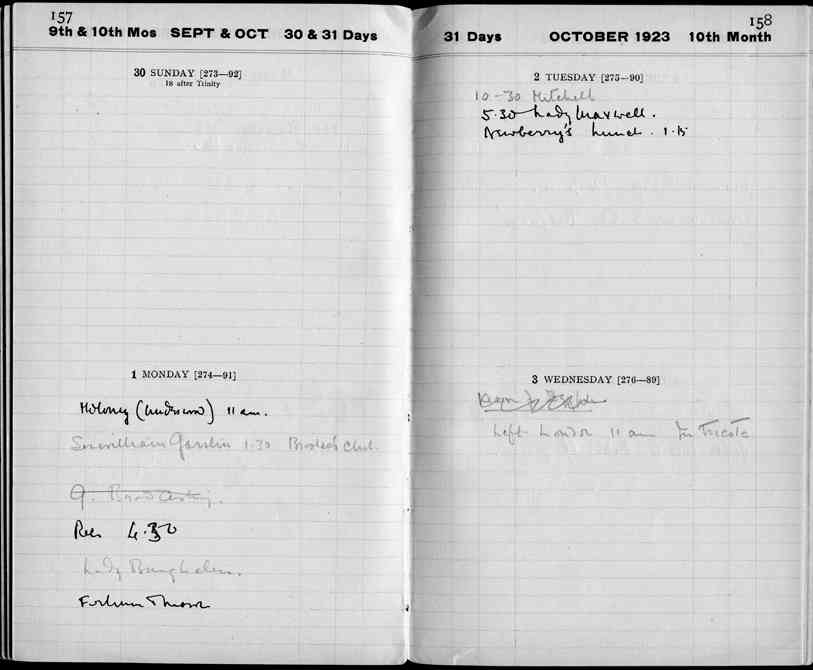 157
9th & 10th Mos SEPT & OCT 30 & 31 Days
30 SUNDAY [273—92]
18 after Trinity
1 MONDAY [274—91]
(Anderson) 11 am.
Sir William Garstin 1.30 Club.
4.30
Lady
158
31 Days OCTOBER 1923 10th Month
2 TUESDAY [275—90]
10-30 Mitchell
5.30 Lady Maxwell.
Newberry's lunch. 1.15
3 WEDNESDAY [276—89]
Left London 11 am for Trieste